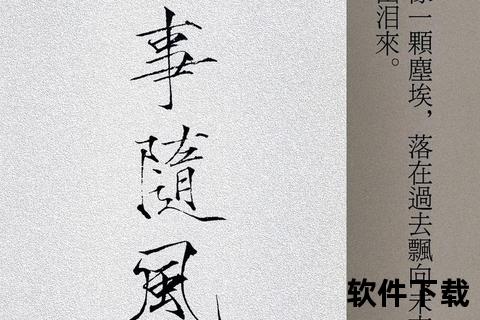 一顆塵埃，落在過去飄向未
泪來。
事隨風
软件下载